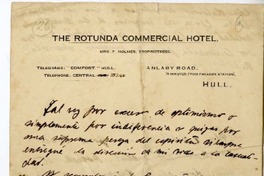 THE ROTUNDA COMMERCIAL HOTEL.
MRS. F. HOLMES, PROPRIETRESS.
TELEGRAMS: "COMFORT" HULL.
TELEPHONE, CENTRAL
ANLABY ROAD,
HULL.
Tal vez por exceso de optimismo o
simplemente por indiferencia o quizas por
una suprema pereza del espiritu siempre
entregué la dirección de mi vida a la casua-
lidad.